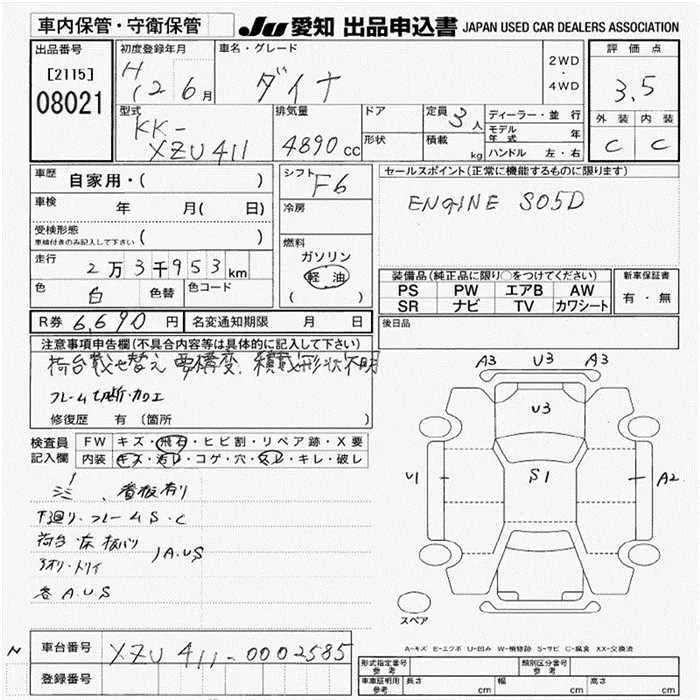 車内保管・守衛保管
JU 愛知 出品申込書 JAPAN USED CAR DEALERS ASSOCIATION
出品番号
[2115]
08021
初度登録年月
H 12 6月
車名・グレード
ダイナ
2WD
・
4WD
評価点
3.5
外装 内装
C C
型式
KK-
XZU411
排気量
4890cc
ドア
形状
定員 3人
積載 kg
ディーラー・並行
モデル年式 年
ハンドル 左・右
車歴 自家用・( )
車検 年 月( 日)
受検形態
車検付きのみ記入して下さい ( )
走行 2万3千953km
色 白 色替 色コード
シフト F6
冷房
燃料
ガソリン
軽油
( )
セールスポイント(正常に機能するものに限ります)
ENGINE S05D
装備品(純正品に限り○をつけてください)
PS PW エアB AW
SR ナビ TV カワシート
新車保証書
有・無
R券 6,690円 名変通知期限 月 日
後日品
注意事項申告欄(不具合内容等は具体的に記入して下さい)
荷台載せ替え 要構変、積載形状不明
フレーム切断・加工
修復歴 有 (箇所 )
検査員
記入欄
FW キズ・飛石・ヒビ割・リペア跡・X要
内装 キズ・汚レ・コゲ・穴・スレ・キレ・破レ
看板有り
下廻り・フレームS・C
荷台・床板バリ
アオリ・トリイ
)A.U.S
各A.U.S
A3 U3 A3
U3
U1 S1 A2
スペア
A-キズ E-エクボ U-凹み W-補修跡 S-サビ C-腐食 XX-交換済
N
車台番号 XZU411-0002585
登録番号
形式指定番号
参考
類別区分番号
参考
車庫証明用
参考
長さ cm 幅 cm 高さ cm